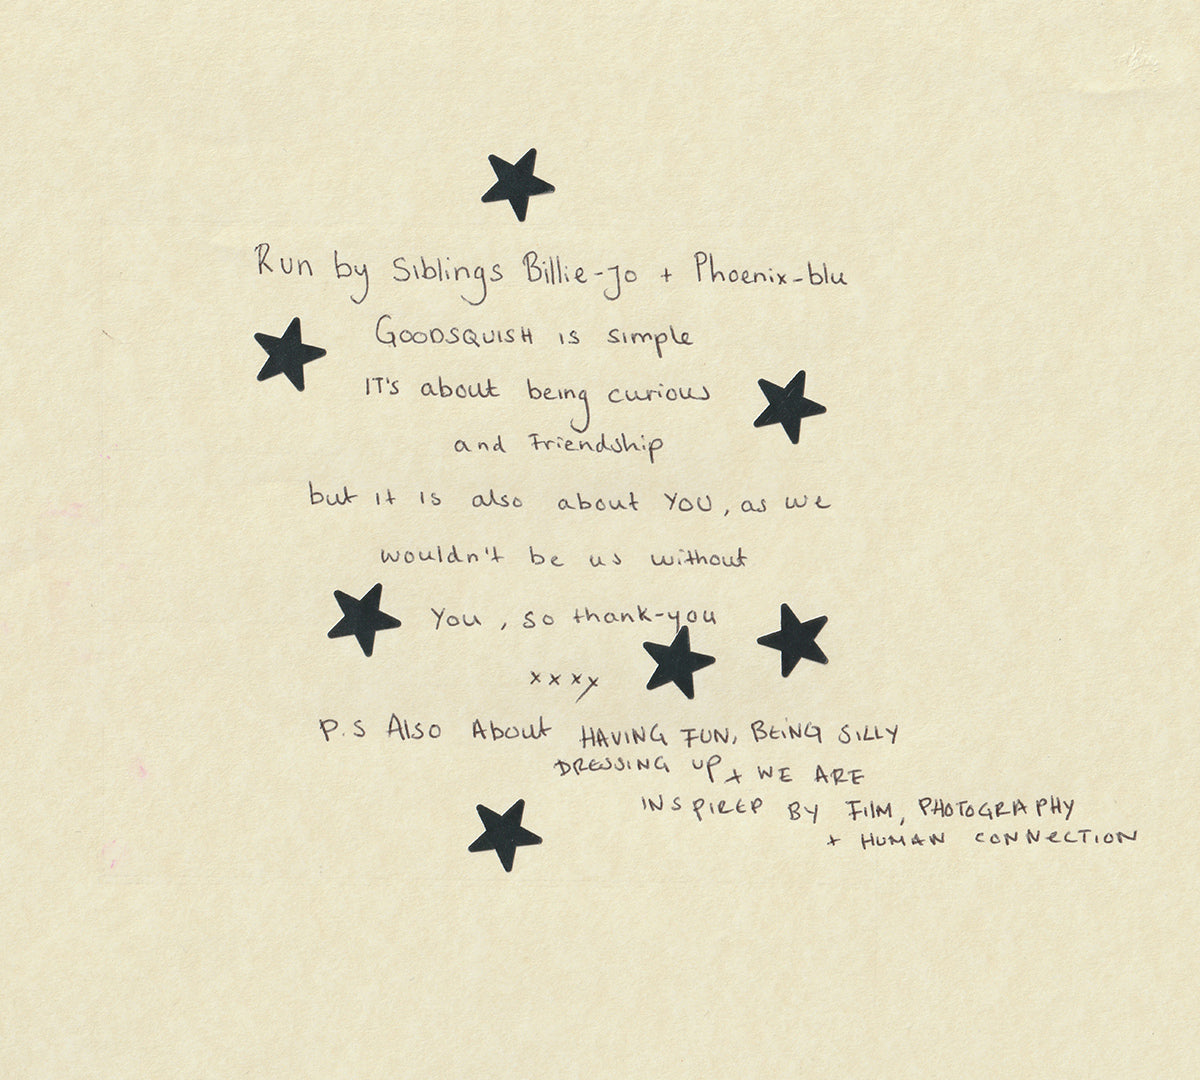 Run by Siblings Billie-Jo + Phoenix-blu
GOODSQUISH is simple
IT's about being curious
and Friendship
but it is also about YOU, as we
wouldn't be us without
You, so thank-you
xxxx
P.S Also About HAVING FUN, BEING SILLY
DRESSING UP + WE ARE
INSPIRED BY FILM, PHOTOGRAPHY
+ HUMAN CONNECTION